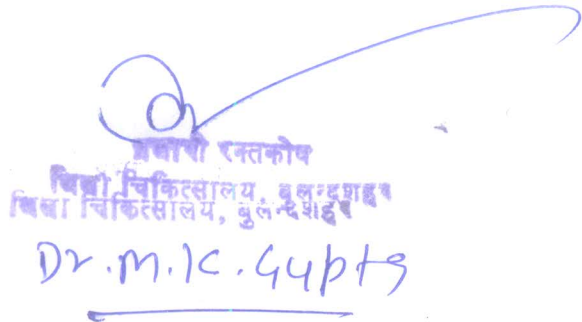 प्रभारी रक्तकोष
जिला चिकित्सालय, बुलन्दशहर
जिला चिकित्सालय, बुलन्दशहर
Dr. M. K. Gupta